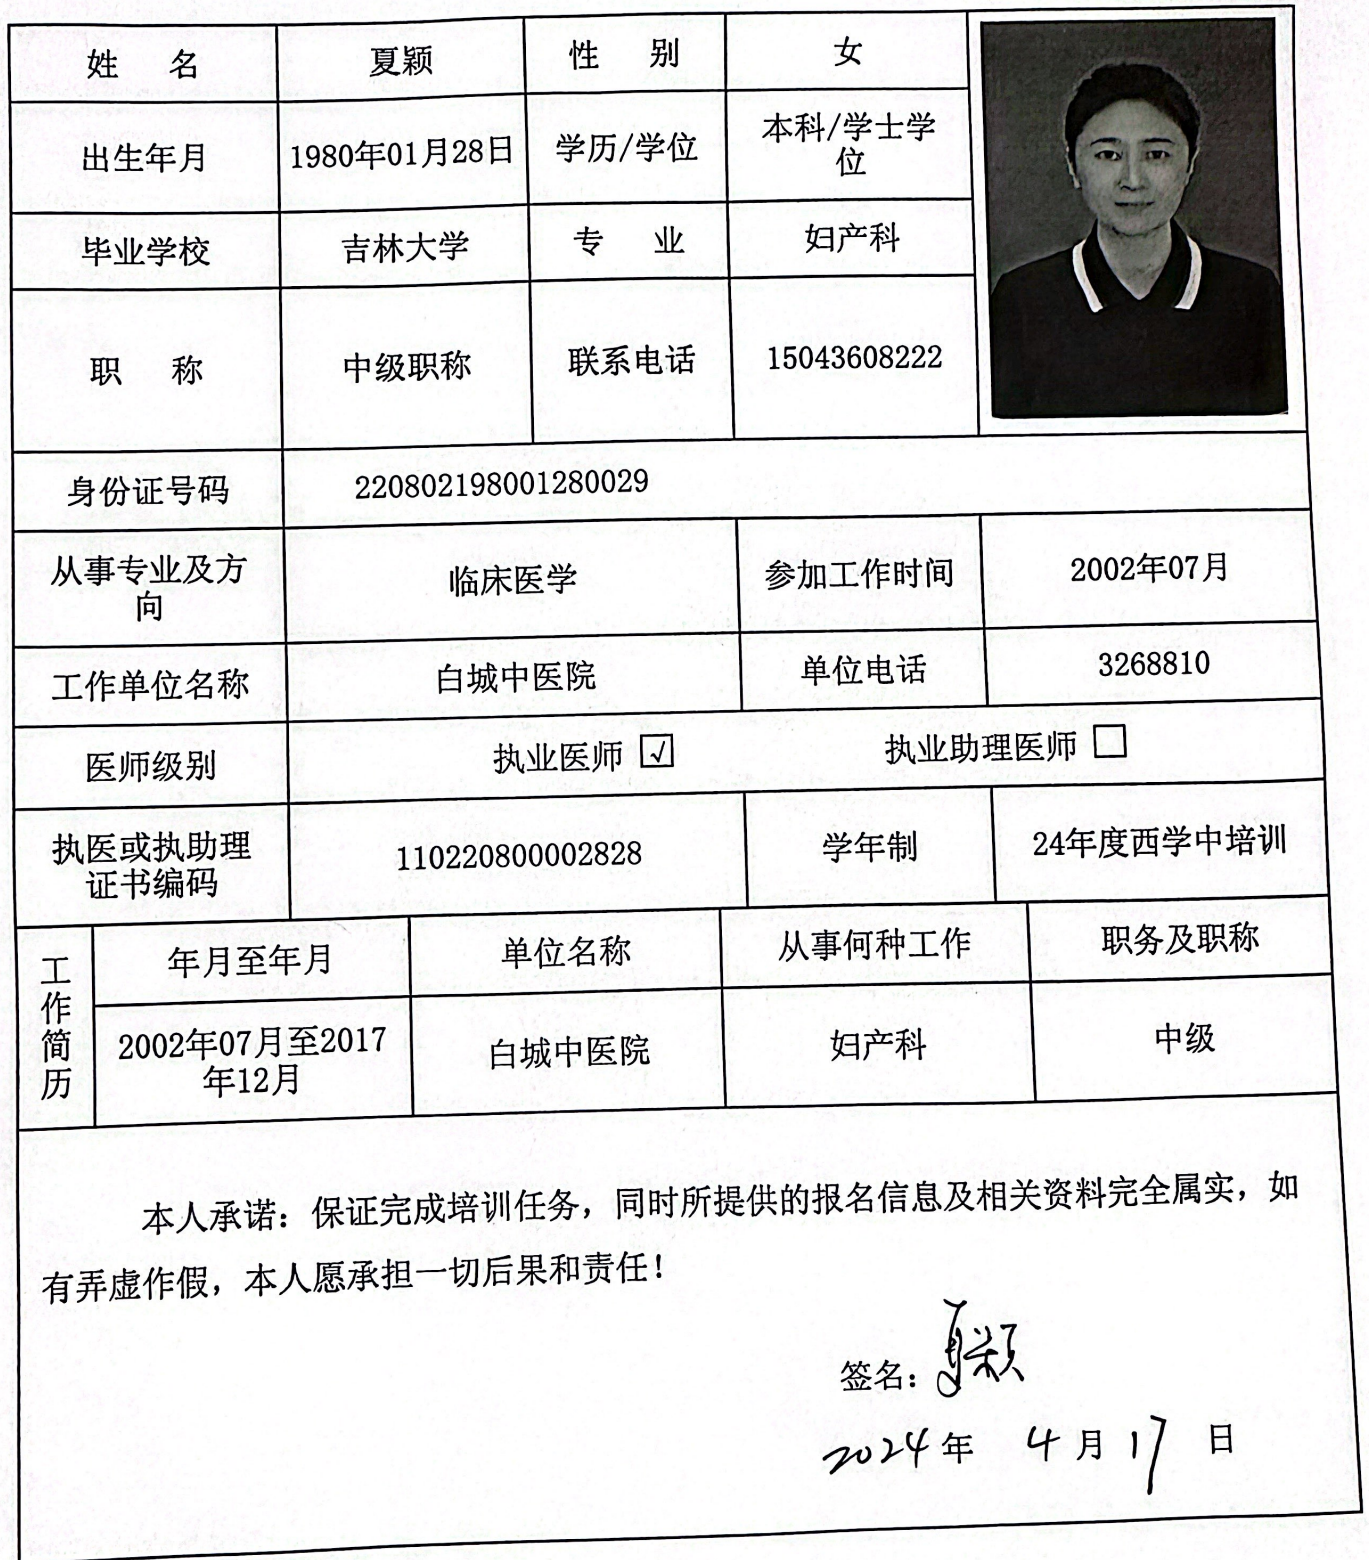 姓 名 夏颖 性 别 女
出生年月 1980年01月28日 学历/学位 本科/学士学
位
毕业学校 吉林大学 专 业 妇产科
职 称 中级职称 联系电话 15043608222
身份证号码 220802198001280029
从事专业及方
向 临床医学 参加工作时间 2002年07月
工作单位名称 白城中医院 单位电话 3268810
医师级别 执业医师 ☑ 执业助理医师 □
执医或执助理
证书编码 110220800002828 学年制 24年度西学中培训
工作简历 年月至年月 单位名称 从事何种工作 职务及职称
2002年07月至2017
年12月 白城中医院 妇产科 中级
本人承诺：保证完成培训任务，同时所提供的报名信息及相关资料完全属实，如
有弄虚作假，本人愿承担一切后果和责任！
签名：夏颖
2024年 4月17日